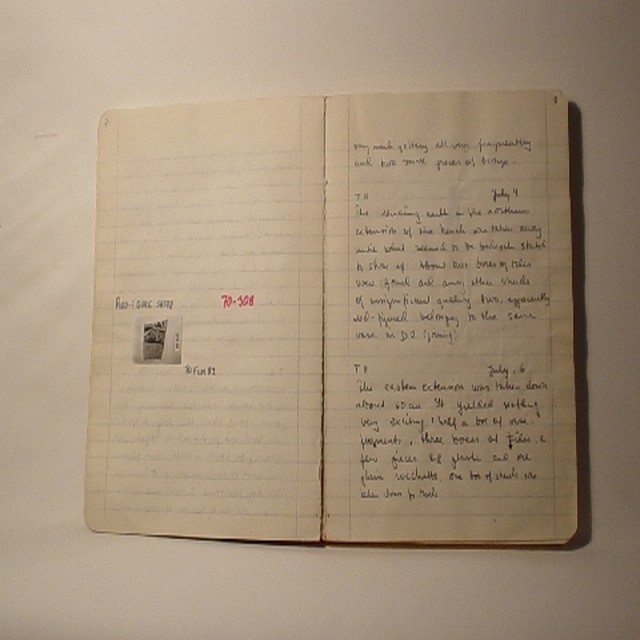 RED-FIGURE SHERD
70-308
70 Fim 82
very much
and two small pieces of bronze.
T 11 July 4
The remaining earth in the northern
extension of the trench was taken away
until what seemed to be bedrock started
to show up. About two boxes of tiles
were found and among other sherds
of insignificant quality two, apparently
red-figured belonging to the same
vase as D2
T 11 July 6
The eastern extension was taken down
about 60 cm. It yielded nothing
very exciting: half a box of
fragments, three boxes of tiles, a
few pieces of and one
glass one box of sherds was
taken down to